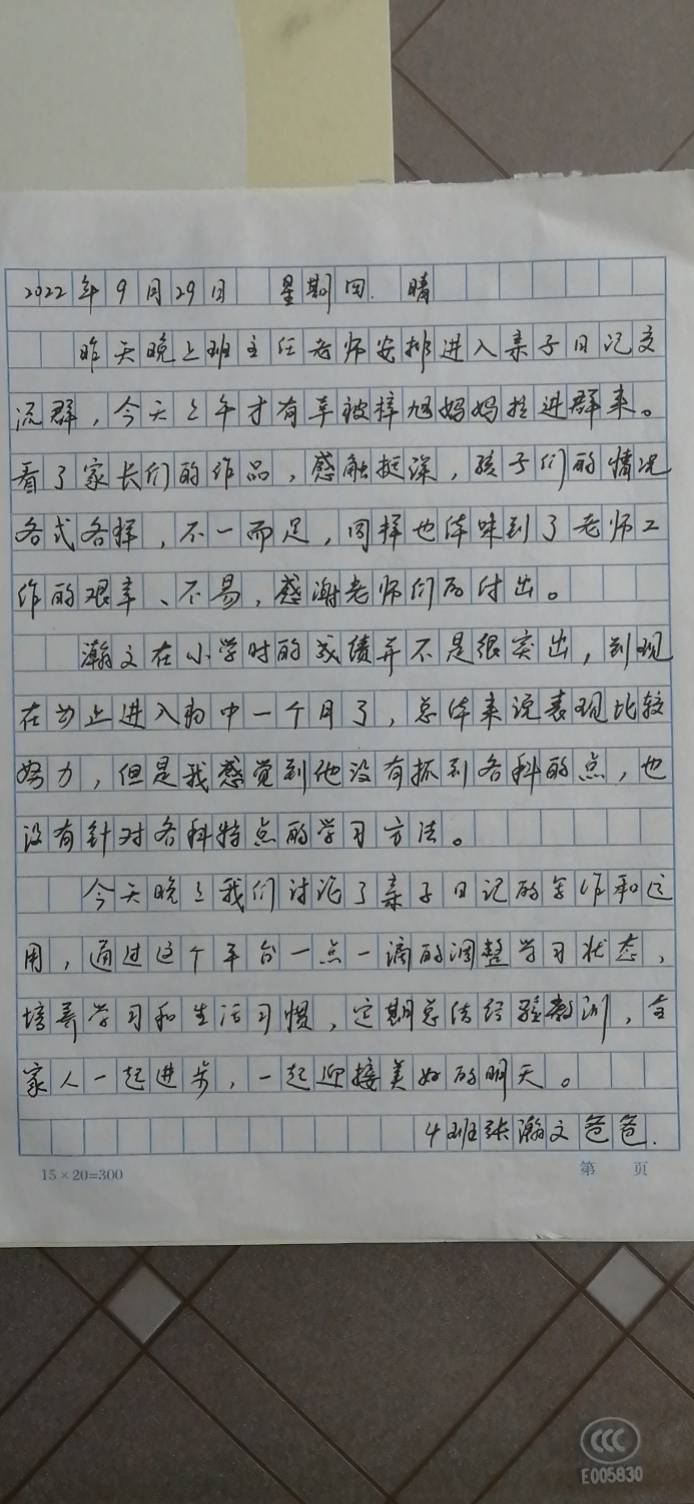 2022年9月29日 星期四. 晴
昨天晚上班主任老师安排进入亲子日记交
流群，今天上午才有幸被梓旭妈妈拉进群来。
看了家长们的作品，感触挺深，孩子们的情况
各式各样，不一而足，同样也体味到了老师工
作的艰辛、不易，感谢老师们的付出。
瀚文在小学时的成绩并不是很突出，到现
在为止进入初中一个月了，总体来说表现比较
努力，但是我感觉到他没有抓到各科的点，也
没有针对各科特点的学习方法。
今天晚上我们讨论了亲子日记的写作和运
用，通过这个平台一点一滴的调整学习状态，
培养学习和生活习惯，定期总结经验教训，全
家人一起进步，一起迎接美好的明天。
4班张瀚文爸爸.
15×20=300 第 页
CCC
E005830